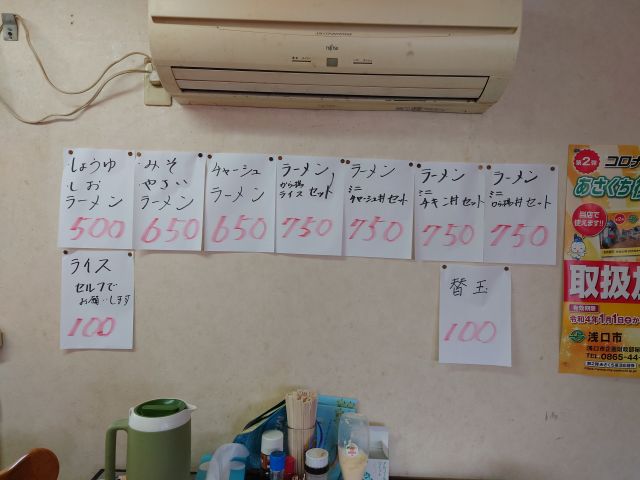 FUJITSU
・しょうゆ
しお
ラーメン
500
・みそ
やさい
ラーメン
650
チャーシュ
ラーメン
650
ラーメン
から揚
ライス セット
750
ラーメン
ミニ
チャーシュ丼 セット
750
ラーメン
ミニ
チキン丼 セット
750
ラーメン
ミニ
から揚丼 セット
750
ライス
セルフで
お願いします
100
替玉
100
第2弾
コロナ
あさくち
当店で
使えます!!
取扱
有効期間
令和4年1月1日
浅口市
TEL.0865-44-